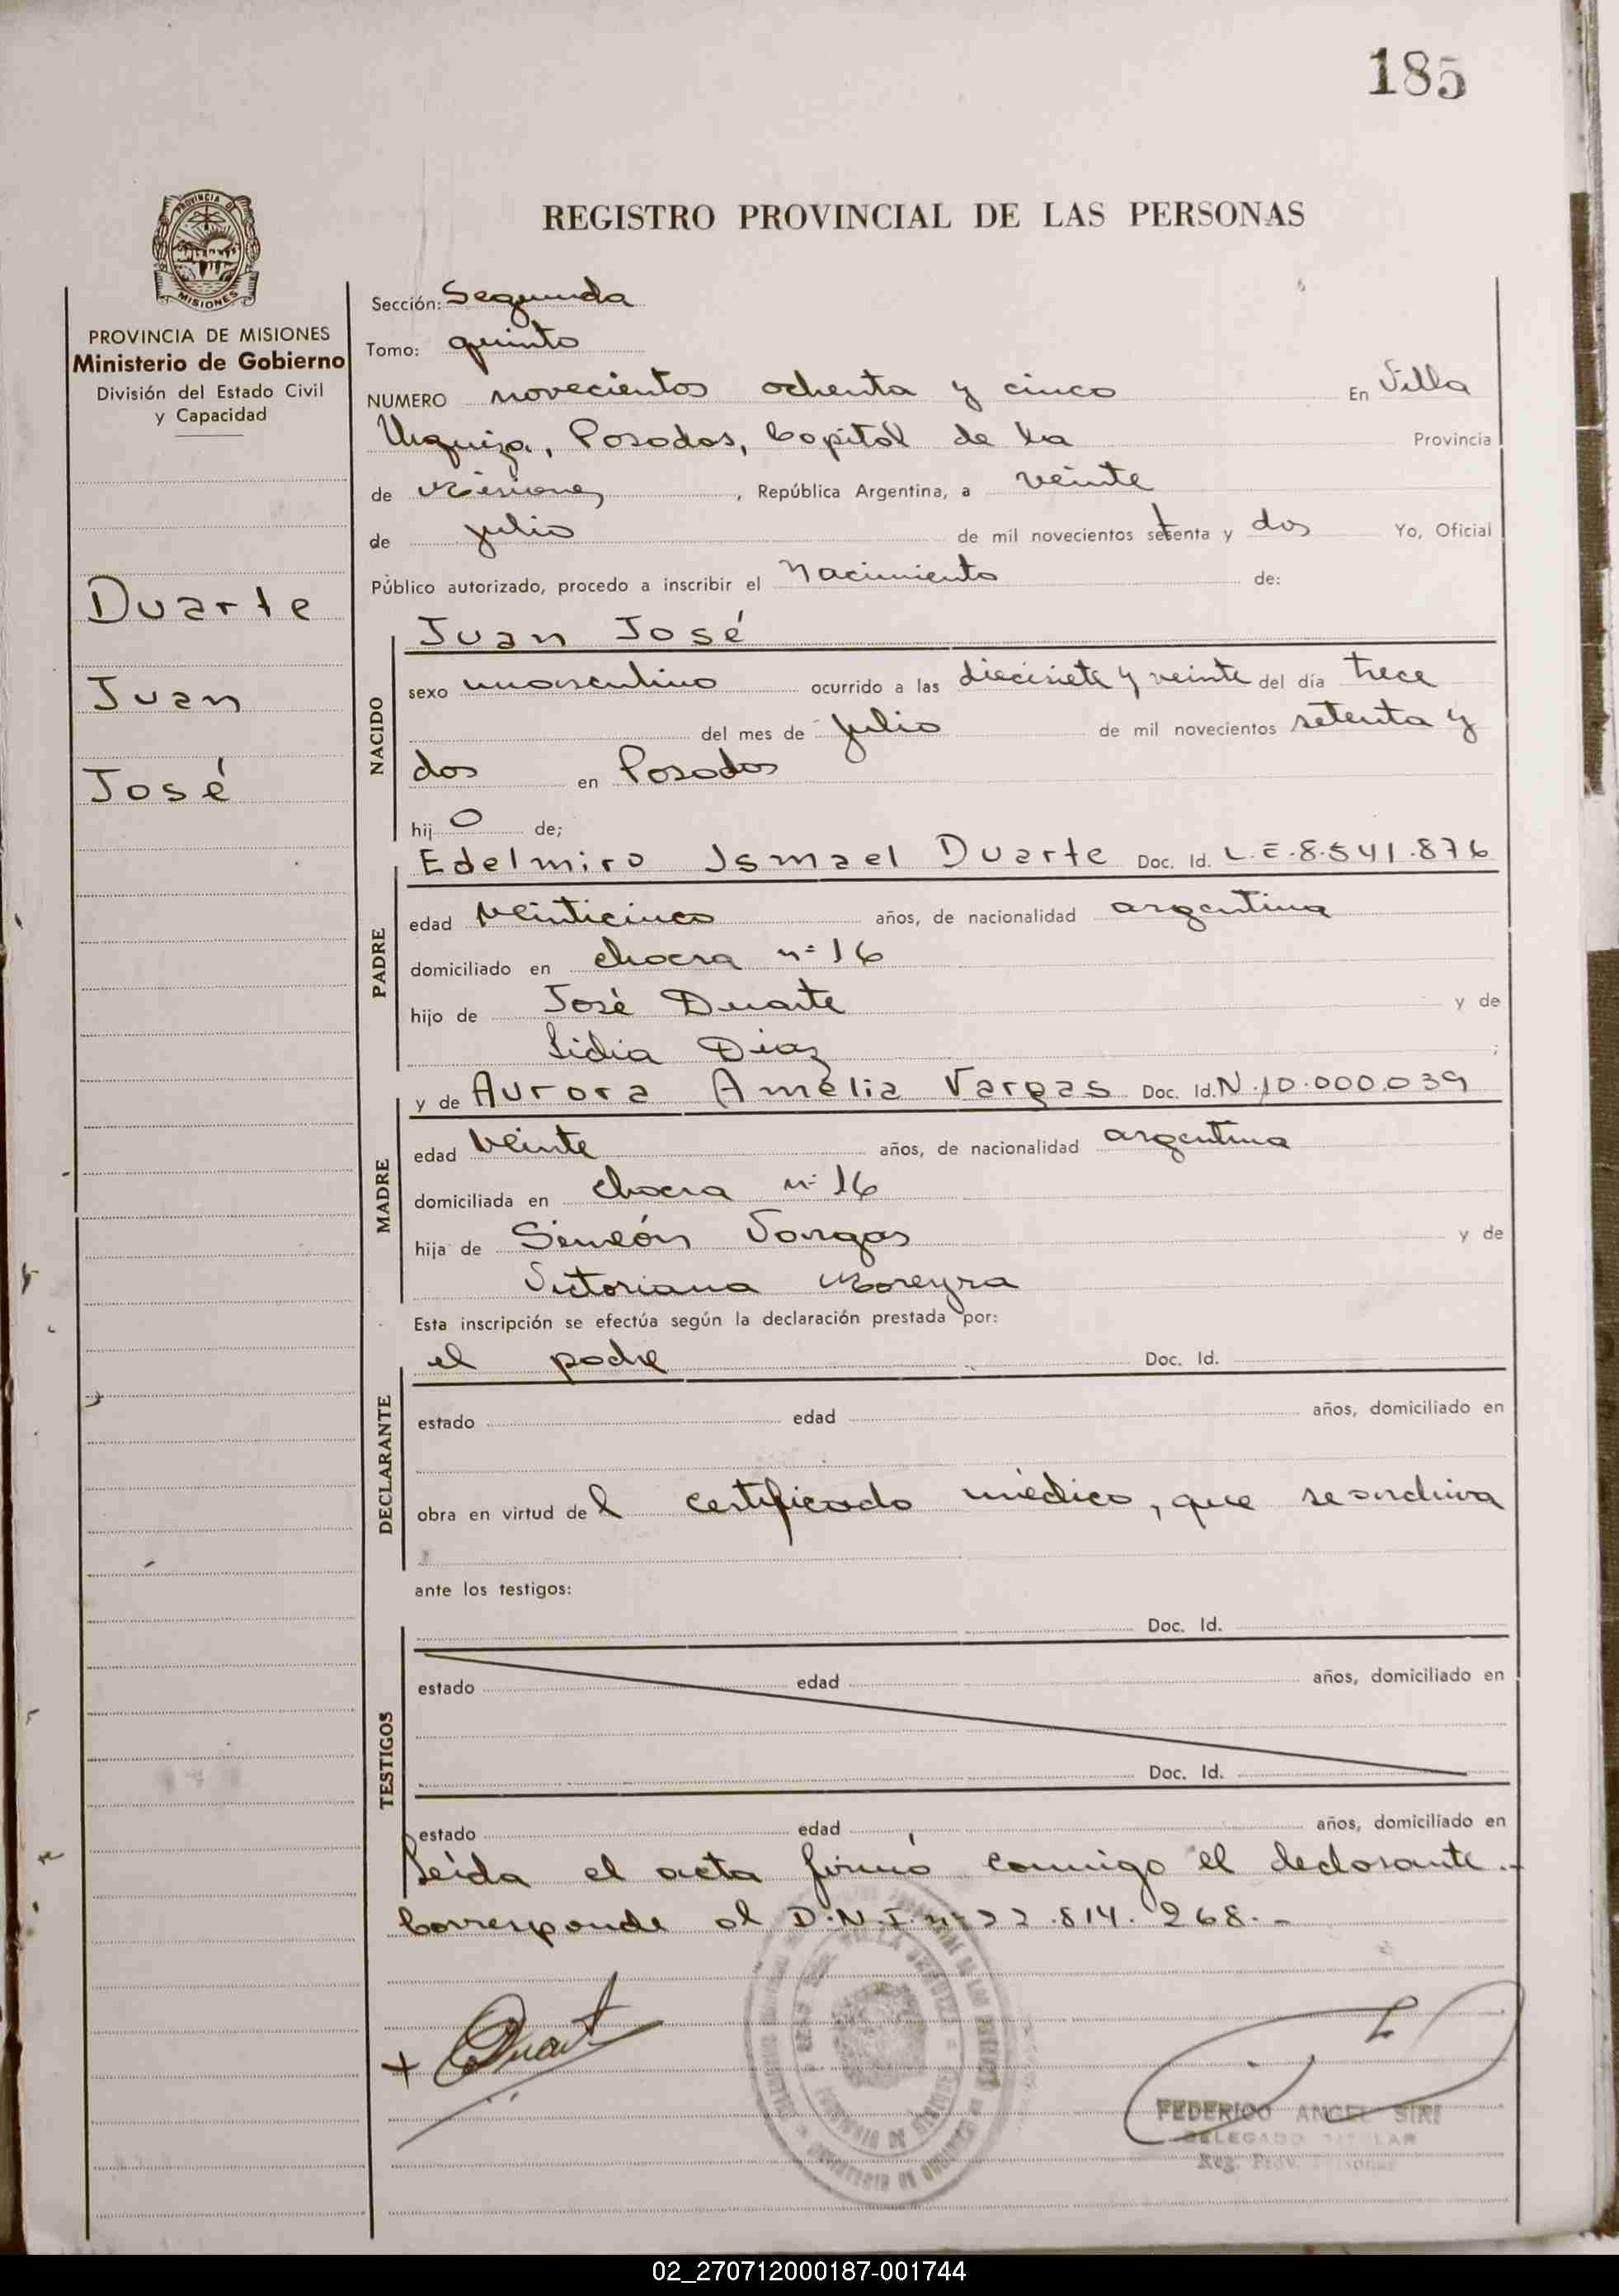 185
PROVINCIA DE
MISIONES
PROVINCIA DE MISIONES
Ministerio de Gobierno
División del Estado Civil
y Capacidad
Duarte
Juan
José
REGISTRO PROVINCIAL DE LAS PERSONAS
Sección: Segunda
Tomo: quinto
NUMERO novecientos ochenta y cinco En Villa
Urquiza, Posadas, Capital de la Provincia
de Misiones, República Argentina, a veinte
de julio de mil novecientos setenta y dos Yo, Oficial
Público autorizado, procedo a inscribir el Nacimiento de:
NACIDO
Juan José
sexo masculino ocurrido a las diecisiete y veinte del día trece
del mes de julio de mil novecientos setenta y
dos en Posadas
hij o de;
PADRE
Edelmiro Ismael Duarte Doc. Id. L.E.8.541.876
edad veinticinco años, de nacionalidad argentina
domiciliado en chacra nº 16
hijo de José Duarte y de
Lidia Diaz ;
MADRE
y de Aurora Amelia Vargas Doc. Id. N.10.000.039
edad veinte años, de nacionalidad argentina
domiciliada en chacra nº 16
hija de Simeón Vargas y de
Victoriana Moreyra
Esta inscripción se efectúa según la declaración prestada por:
DECLARANTE
el padre Doc. Id.
estado edad años, domiciliado en
obra en virtud del certificado médico, que se archiva
ante los testigos:
TESTIGOS
Doc. Id.
estado edad años, domiciliado en
Doc. Id.
estado edad años, domiciliado en
Leída el acta firmó conmigo el declarante.-
Corresponde al D.N.I. nº 22.814.268.-
+ EDuarte
FEDERICO ANGEL SIRI
DELEGADO TITULAR
Reg. Prov. Personas
02_270712000187-001744